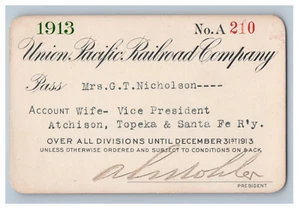 1913 No. A 210
Union Pacific Railroad Company
Pass Mrs.G.T.Nicholson----
ACCOUNT Wife- Vice President
Atchison, Topeka & Santa Fe R'y.
OVER ALL DIVISIONS UNTIL DECEMBER 31ST 1913
UNLESS OTHERWISE ORDERED AND SUBJECT TO CONDITIONS ON BACK
A L Mohler
PRESIDENT